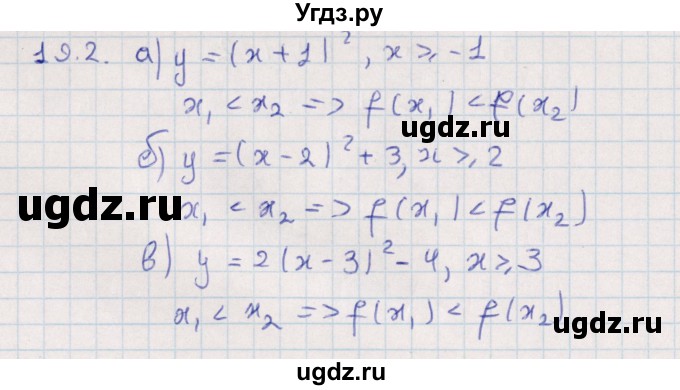 Угдз.ру
19.2. а) y = (x + 1)², x ⩾ -1
x₁ < x₂ => f(x₁) < f(x₂)
ugdz.ru
б) y = (x - 2)² + 3, x ⩾ 2
ugdz.ru
ugdz.ru
x₁ < x₂ => f(x₁) < f(x₂)
в) y = 2(x - 3)² - 4, x ⩾ 3
x₁ < x₂ => f(x₁) < f(x₂)
ugdz.ru
ugdz.ru